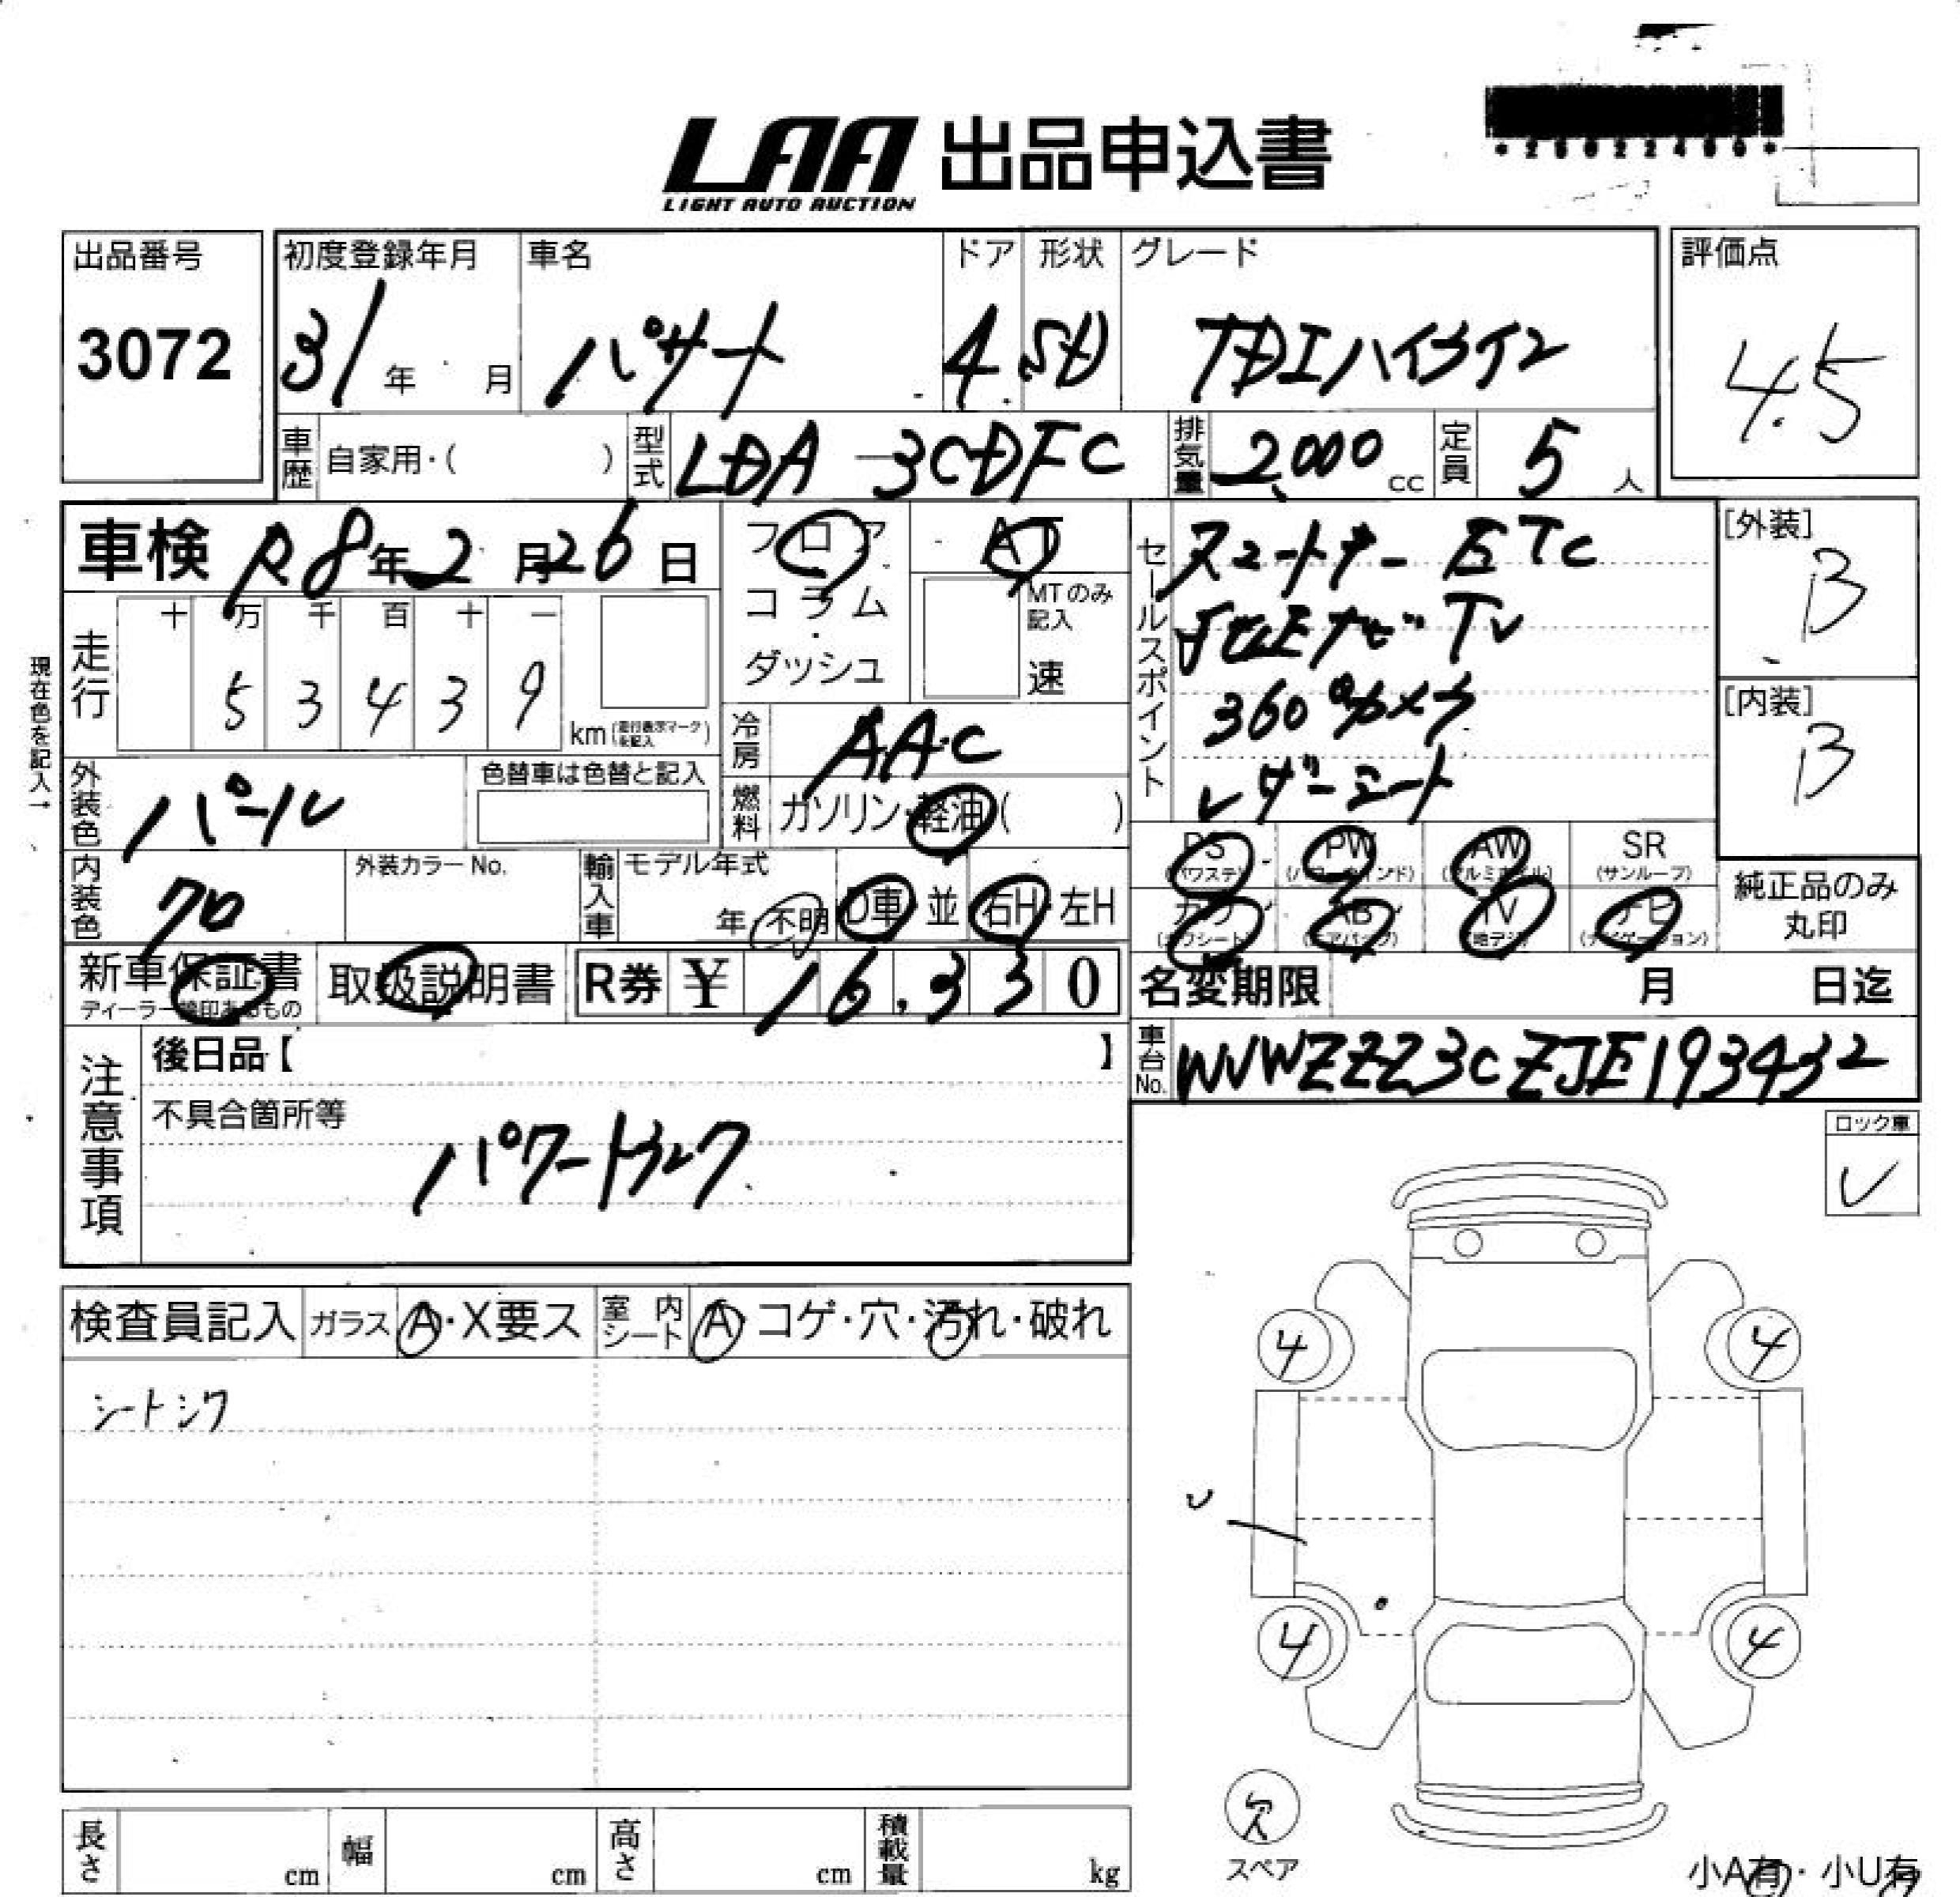 LAA 出品申込書
LIGHT AUTO AUCTION
出品番号
3072
初度登録年月
31年 月
車名
パサート
ドア
4
形状
SD
グレード
TDIハイライン
評価点
4.5
車歴 自家用・( )
型式 LDA-3CDFC
排気量 2,000 cc
定員 5 人
車検 R8年2月26日
フロア
コラム
ダッシュ
AT
MTのみ記入
速
セールスポイント
スマートキー ETC
ナビ TV
360°カメラ
レザーシート
[外装]
B
[内装]
B
現在色を記入→
走行
十 万 千 百 十 一
5 3 4 3 9
km(走行表示マークを記入)
冷房 AAC
燃料 ガソリン・軽油( )
外装色 パール
色替車は色替と記入
内装色 クロ
外装カラーNo.
輸入車
モデル年式
年 不明
D車・並
右H・左H
PS
(パワステ)
PW
(パワーウインド)
AW
(アルミホイル)
SR
(サンルーフ)
カワ
(カワシート)
AB
(エアバッグ)
TV
(地デジ)
ナビ
(ナビゲーション)
純正品のみ
丸印
新車保証書
ディーラー捺印あるもの
取扱説明書
R券 ¥ 16,330
名変期限 月 日迄
車台No. WVWZZZ3CZJE193432
注意事項
後日品【 】
不具合箇所等
パワートランク
ロック車
レ
検査員記入
ガラス A・X要ス
室内シート A・コゲ・穴・汚れ・破れ
シートシワ
4
4
U
4
4
欠
スペア
長さ cm
幅 cm
高さ cm
積載量 kg
小A有・小U有